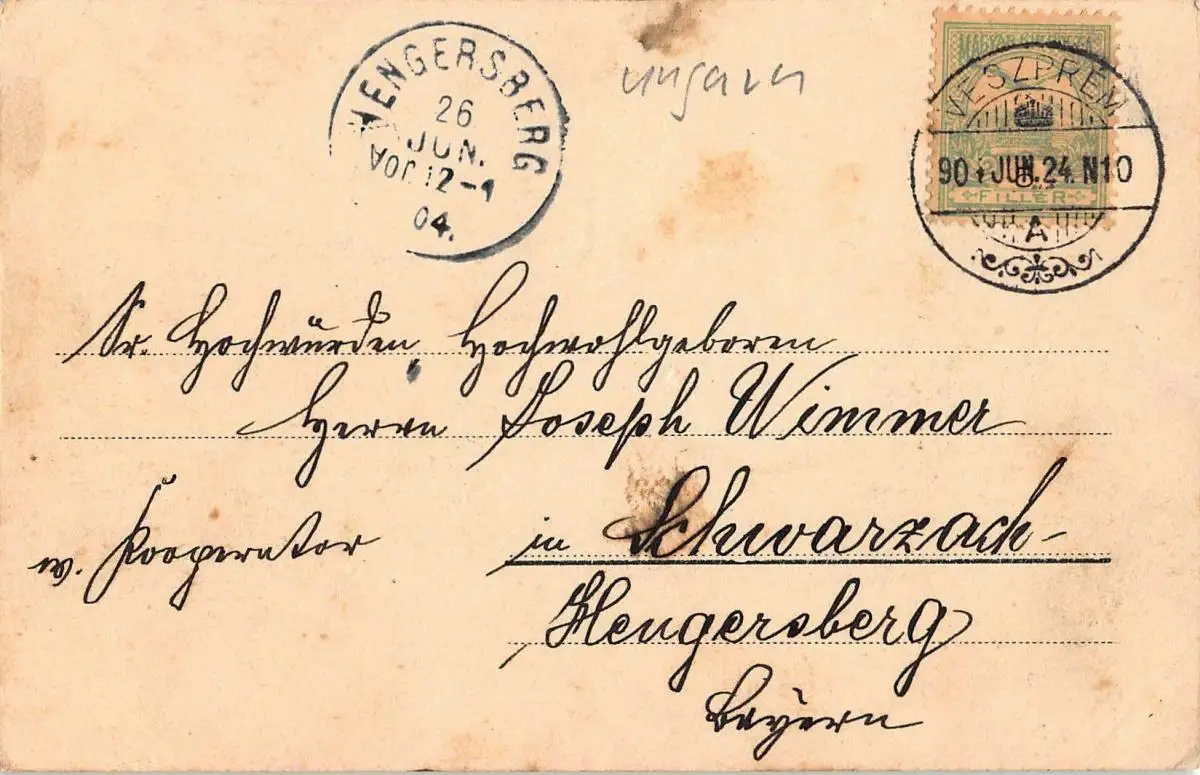 HENGERSBERG
26
JUN.
VOR 12-1
04.
ungarn
MAGYAR
FILLÉR
VESZPRÉM
904 JUN. 24. N10
A
Sr. Hochwürden, Hochwohlgeboren
Herrn Joseph Wimmer
w. Kooperator
in Schwarzach-
Hengersberg
Bayern